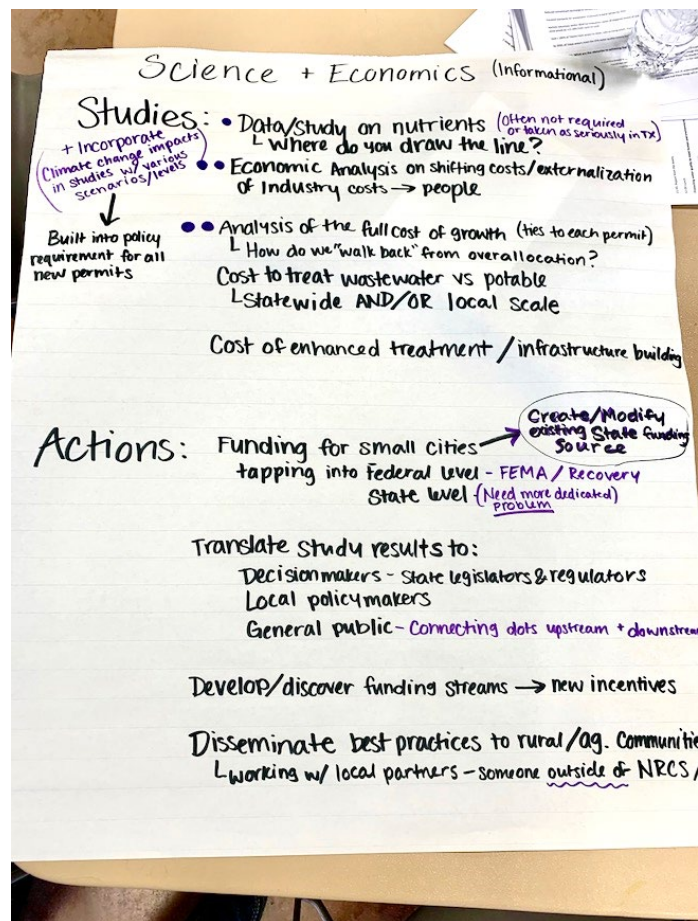 Science + Economics (Informational)
Studies:
+ Incorporate
(Climate change impacts
in studies w/ various
scenarios/levels)
Built into policy
requirement for all
new permits
• Data/study on nutrients (Often not required
or taken as seriously in TX)
└ Where do you draw the line?
• • Economic Analysis on shifting costs/externalization
of Industry costs → people
• • Analysis of the full cost of growth (ties to each permit)
└ How do we "walk back" from overallocation?
Cost to treat wastewater vs potable
└ Statewide AND/OR local scale
Cost of enhanced treatment / infrastructure building
Actions:
Funding for small cities →
Create/Modify
existing State funding
Source
tapping into Federal level - FEMA / Recovery
State level - (Need more dedicated)
problem
Translate study results to:
Decisionmakers - State legislators & regulators
Local policymakers
General public - Connecting dots upstream + downstream
Develop/discover funding streams → new incentives
Disseminate best practices to rural/ag. Communitie
└ working w/ local partners - someone outside of NRCS /